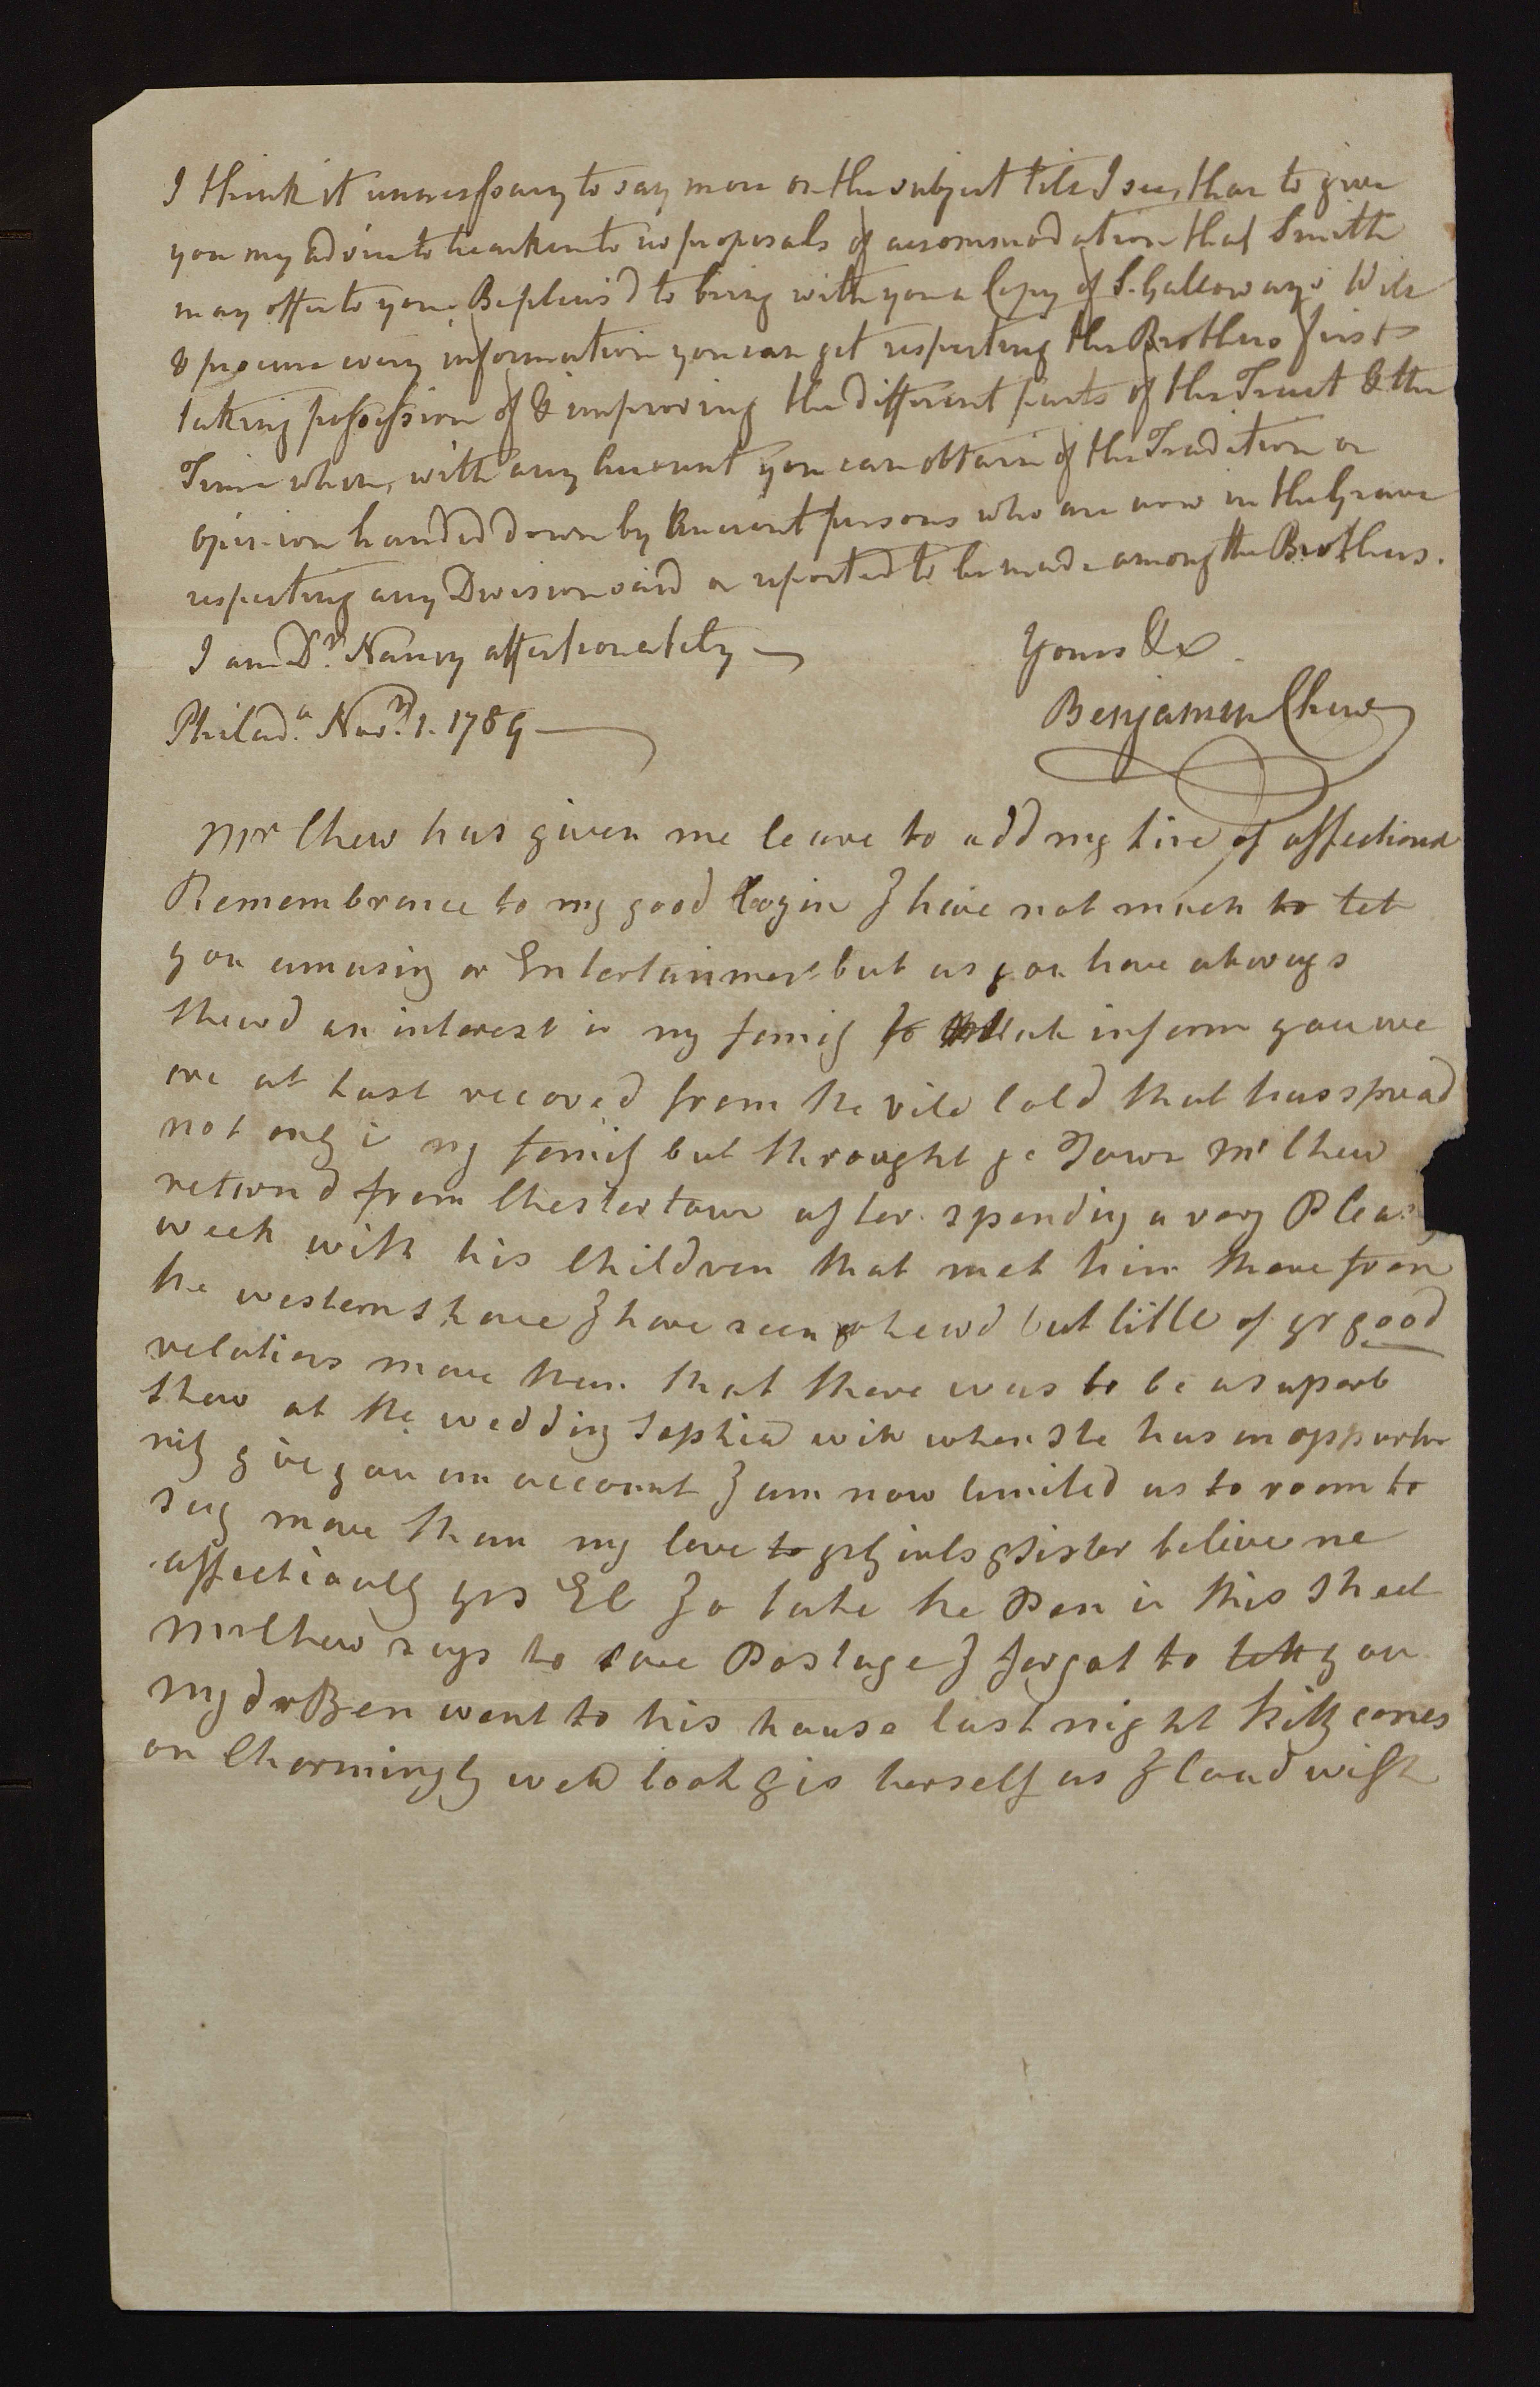 I think it unnecessary to say more on the subject till I see, than to give
you my advice to hearken to no proposals of accommodation that Smith
may offer to you. Be pleas'd to bring with you a Copy of S. Galloway's Will
& procure every information you can get respecting the Brothers first
taking possession of & improving the different parts of the Tract & the
Time when, with any Account you can obtain of the Tradition or
opinion handed down by Ancient persons who are now in the Grave
respecting any Division said or reported to be made among the Brothers.
I am Dr. Nancy affectionately Yours &c.
Benjamin Chew
Philada. Novr. 1. 1789
Mr Chew has given me leave to add my line of affectionat
Remembrance to my good Cogin I have not much to tel
you amusing or Entertainment but as you have always
shewd an interest in my famiy inform you we
are at last recoved from the vile Cold that has spread
not ony i my famiy but throught ye Town Mr Chew
returnd from Chestertown after spending a very Pleas
week with his Children that met him there from
the western shore I have seen or hewd but litle of yr good
relations more than that there was to be a superb
shew at the wedding Sophia will when She has an opportu
nity give you an account I am now limited as to room to
say more than my love to yr girls & Sister belive me
affectionuly yrs EC I o take the Pen in this Sheet
Mr Chew says to save Postage I forgot to tell you
my dr Ben went to his house last night Kitty comes
on Charmingly well look g is herself as I coud wish